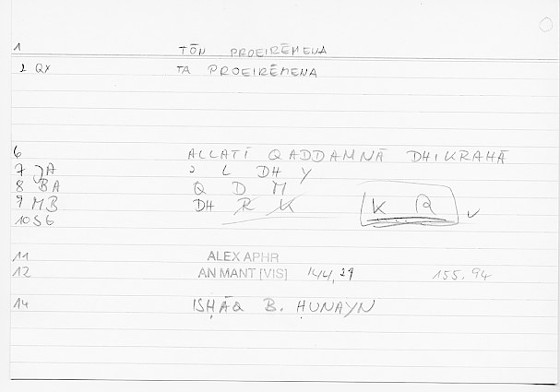 1 TŌN PROEIRĒMENA
2 QY TA PROEIRĒMENA
6 ALLATĪ QADDAMNĀ DHIKRAHĀ
7 JA 2 L DH Y
8 BA Q D M
9 MB DH R K K R ✓
10 S6
11 ALEX APHR
12 AN MANT [VIS] 144,29 155.94
14 ISḤĀQ B. ḤUNAYN